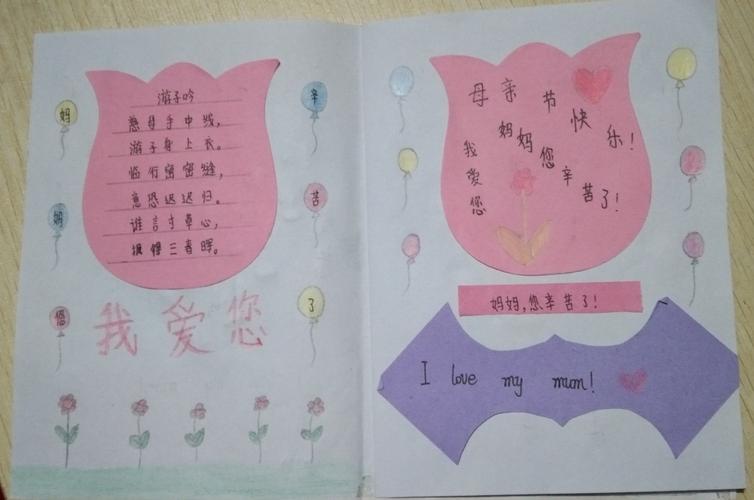 游子吟
慈母手中线，
游子身上衣。
临行密密缝，
意恐迟迟归。
谁言寸草心，
报得三春晖。
妈
妈
您
辛
苦
了
我爱您
母亲节快乐！
妈妈您辛苦了！
我爱您
妈妈，您辛苦了！
I love my mum!